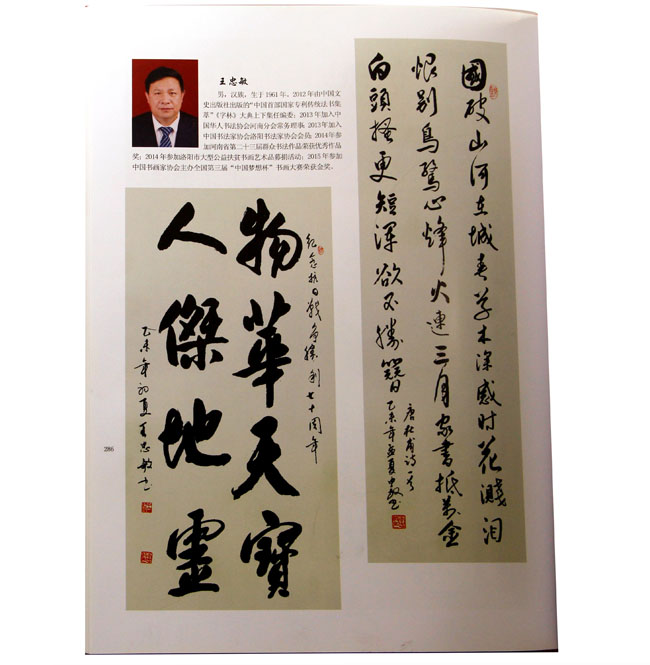 王忠敏
男，汉族，生于1961年，2012年由中国文
史出版社出版的“中国首部国家专利传统法书集
萃”《字林》大典上下集任编委；2013年加入中
国华人书法协会河南分会常务理事；2013年加入
中国书法家协会洛阳书法家协会会员；2014年参
加河南省第二十三届群众书法作品荣获优秀作品
奖；2014年参加洛阳市大型公益扶贫书画艺术品募捐活动；2015年参加
中国书画家协会主办全国第三届“中国梦想杯”书画大赛荣获金奖。
國破山河在城春草木深感时花濺泪
恨别鳥驚心烽火連三月家書抵萬金
白頭搔更短渾欲不勝簪
唐杜甫诗一首
乙未年孟夏中敏书
纪念抗日战争勝利七十周年
物華天寶
人傑地靈
乙未年初夏王忠敏书
286